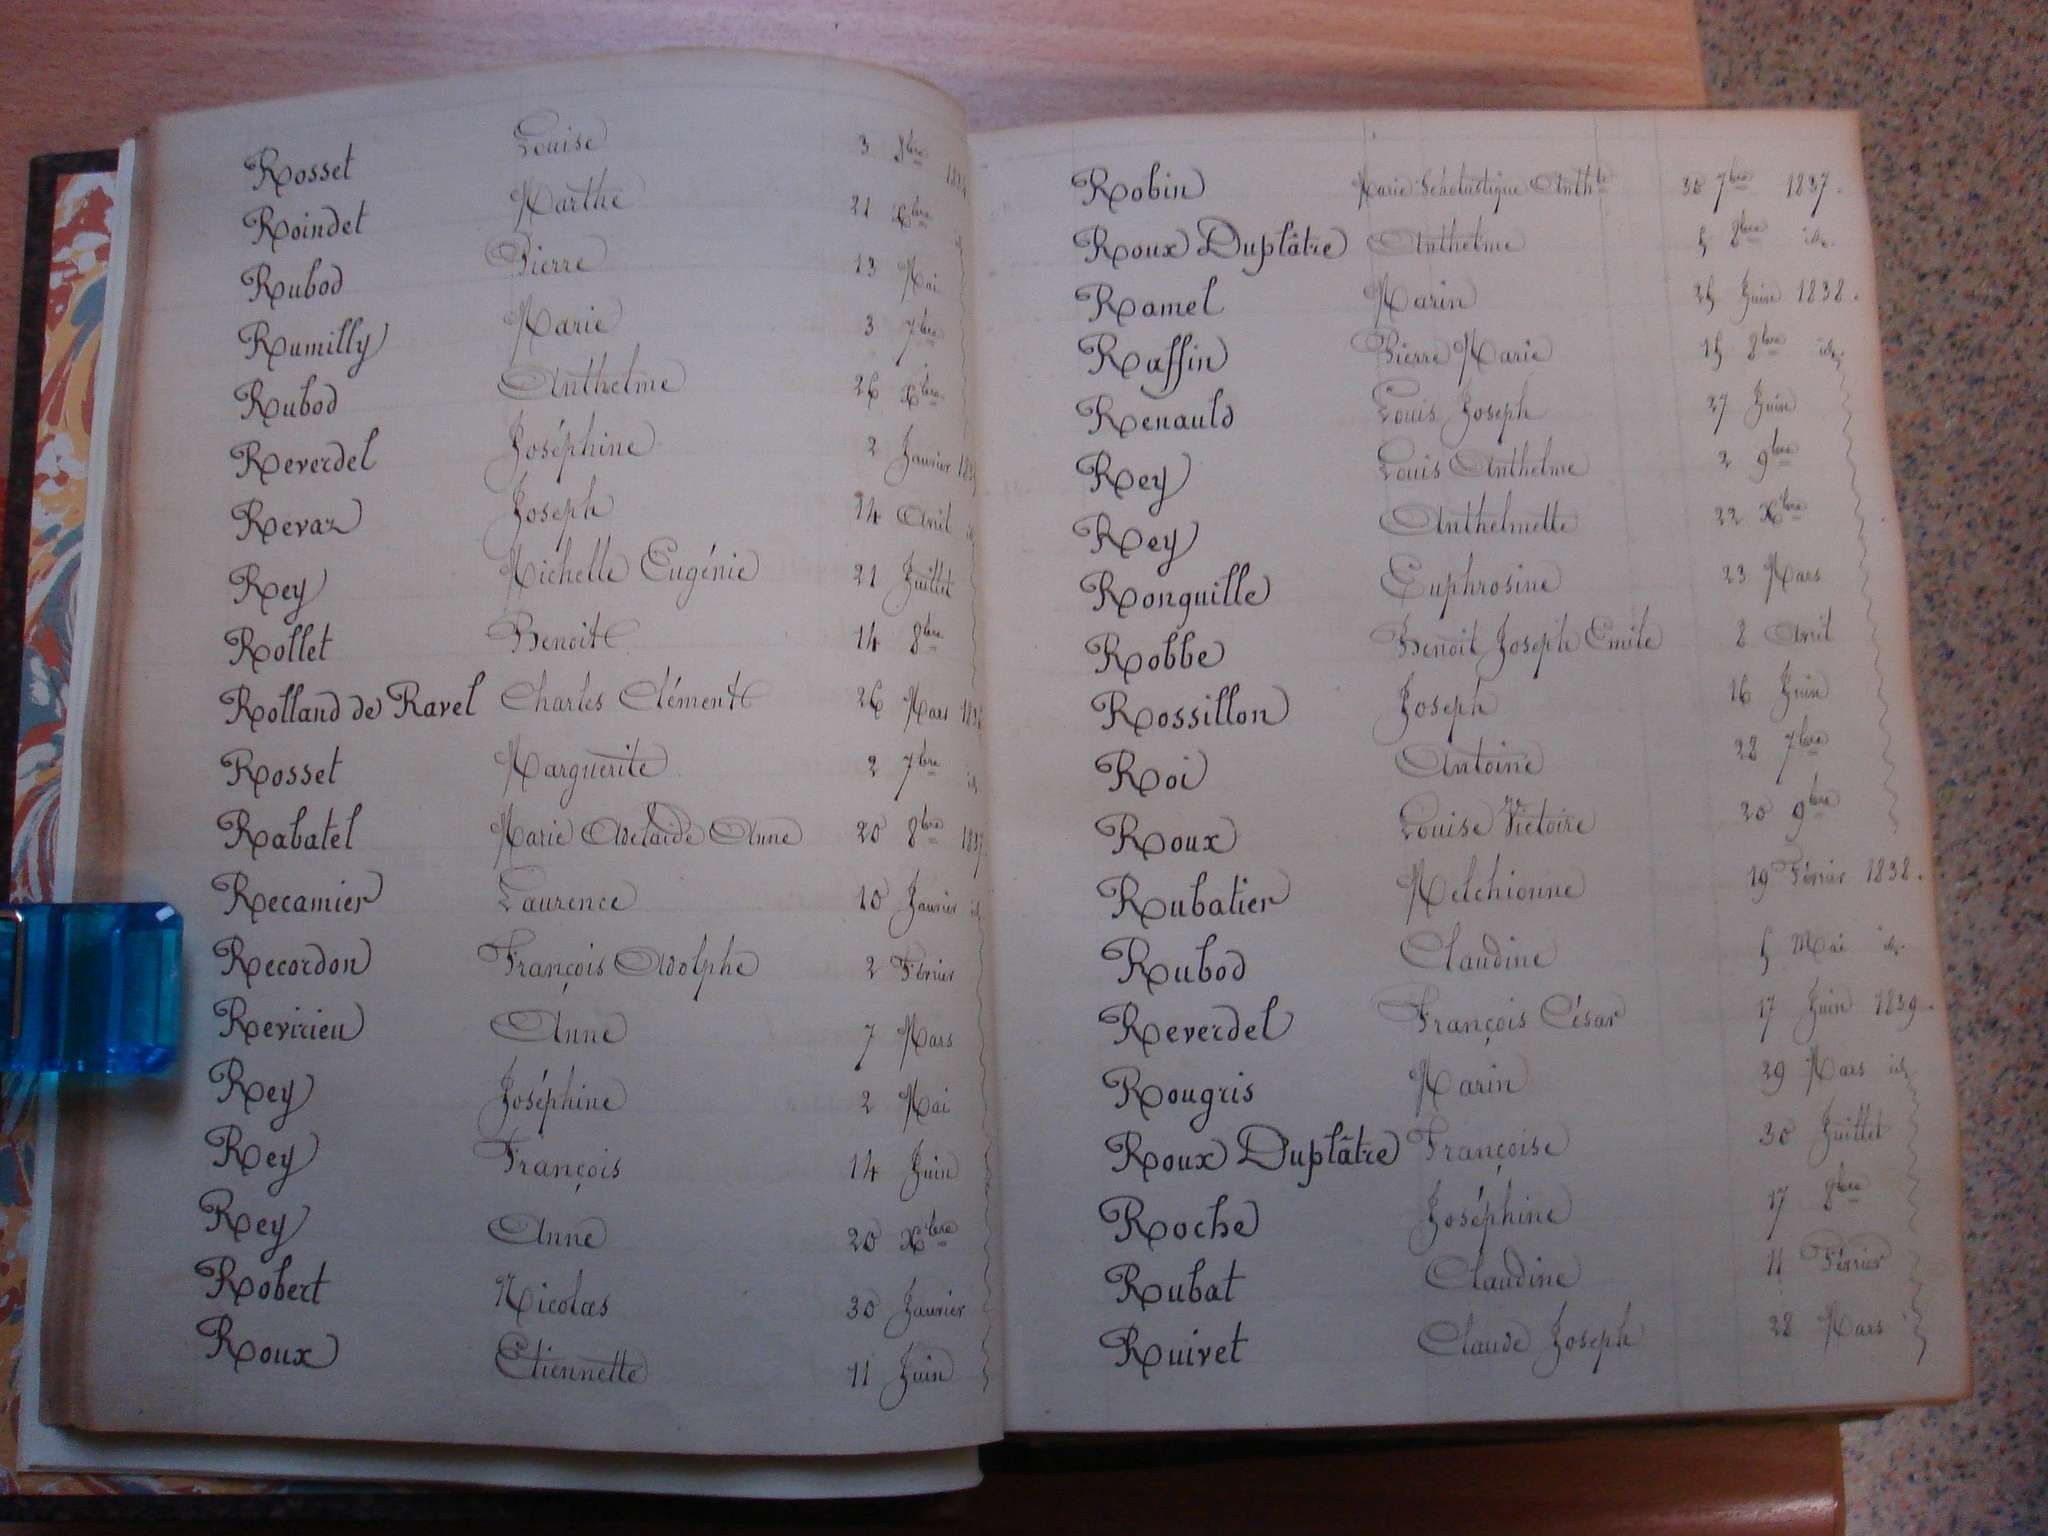 Rosset Louise 3 8bre
Roindet Marthe 21 Xbre
Rubod Pierre 13 Mai
Rumilly Marie 3 7bre
Rubod Anthelme 26 Xbre
Reverdel Joséphine 2 Janvier
Revaz Joseph 14 Avril id
Rey Michelle Eugénie 21 Juillet
Rollet Benoit 14 8bre
Rolland de Ravel Charles Clément 26 Mars
Rosset Marguerite 2 7bre id
Rabatel Marie Adelaide Anne 20 8bre 1837
Recamier Laurence 10 Janvier id
Recordon François Adolphe 2 Février
Revirieu Anne 7 Mars
Rey Joséphine 2 Mai
Rey François 14 Juin
Rey Anne 20 Xbre
Robert Nicolas 30 Janvier
Roux Etiennette 11 Juin
Robin Marie Scholastique Anthte 30 7bre 1837.
Roux Duplâtre Anthelme 5 8bre id.
Ramel Marin 25 Juin 1838.
Raffin Pierre Marie 15 8bre id.
Renauld Louis Joseph 27 Juin
Rey Louis Anthelme 2 9bre
Rey Anthelmette 22 Xbre
Ronguille Euphrosine 23 Mars
Robbe Benoit Joseph Emile 8 Avril
Rossillon Joseph 16 Juin
Roi Antoine 28 7bre
Roux Louise Victoire 20 9bre
Rubatier Melchionne 19 Février 1838.
Rubod Claudine 5 Mai id.
Reverdel François César 17 Juin 1839.
Rougris Marin 29 Mars id.
Roux Duplâtre Françoise 30 Juillet
Roche Joséphine 17 8bre
Rubat Claudine 11 Février
Ruivet Claude Joseph 28 Mars